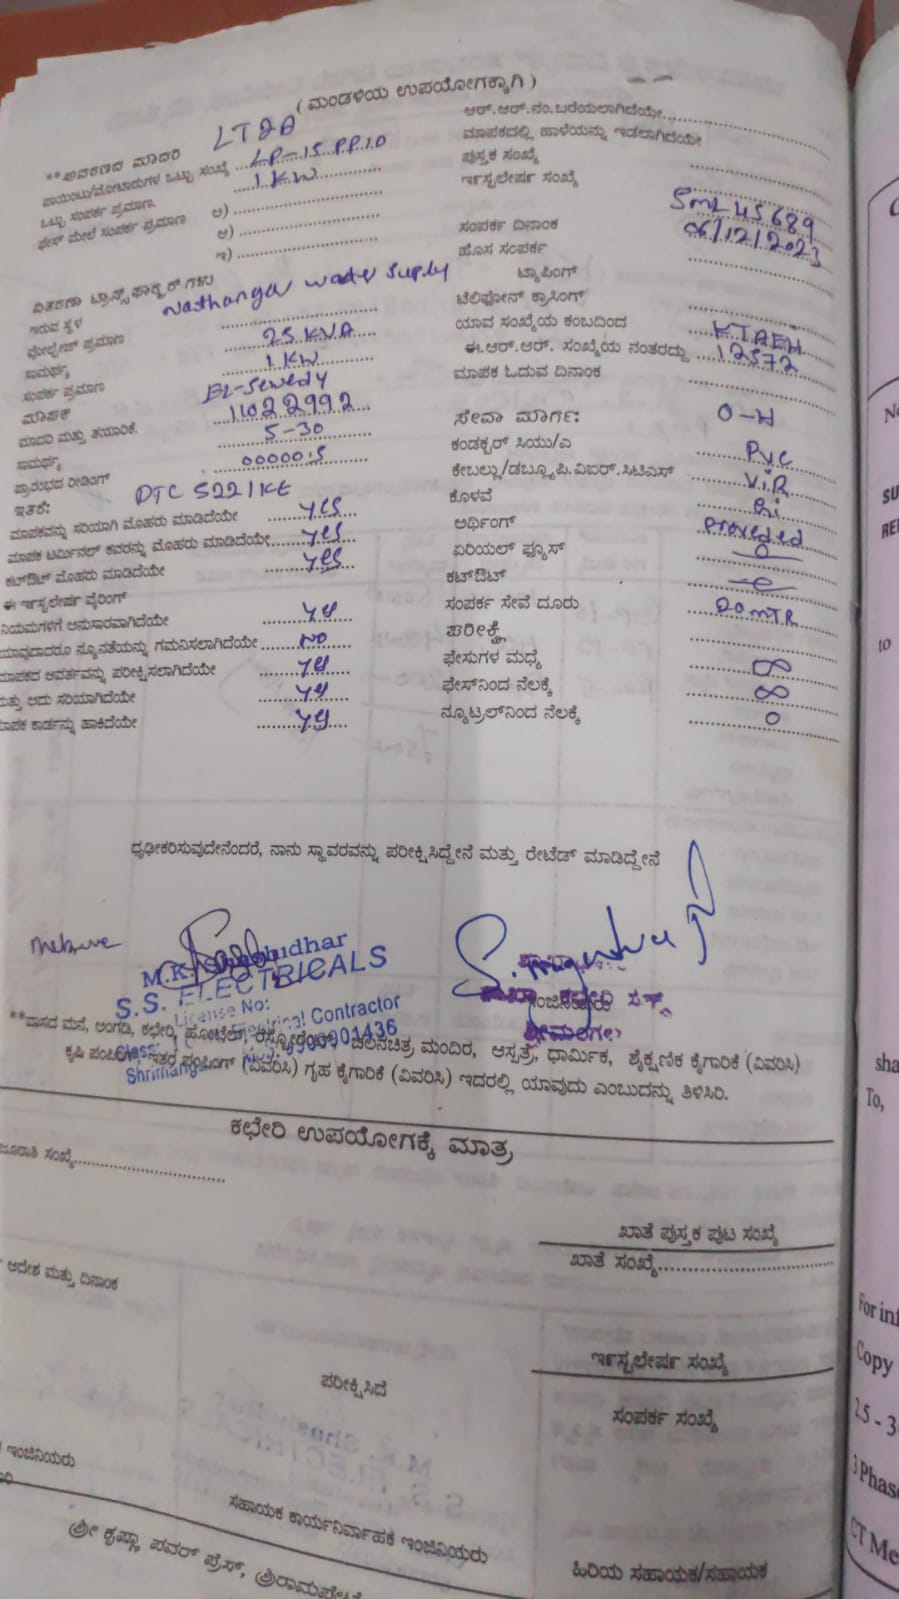 ( ಮಂಡಳಿಯ ಉಪಯೋಗಕ್ಕಾಗಿ )
**ಆವರಣದ ಮಾದರಿ LT2A
ಪಾಯಿಂಟು/ಮೋಟಾರುಗಳ ಒಟ್ಟು ಸಂಖ್ಯೆ LP-15 PP10
ಒಟ್ಟು ಸಂಪರ್ಕ ಪ್ರಮಾಣ. 1 KW
ಫೇಸ್ ಮೇಲೆ ಸಂಪರ್ಕ ಪ್ರಮಾಣ ಅ)
ಆ)
ಇ)
ವಿತರಣಾ ಟ್ರಾನ್ಸ್‌ಫಾರ್ಮರ್‌ಗಳು
ಇರುವ ಸ್ಥಳ Nathangala water supply
ವೋಲ್ಟೇಜ್ ಪ್ರಮಾಣ
ಸಾಮರ್ಥ್ಯ 25 KVA
ಸಂಪರ್ಕ ಪ್ರಮಾಣ 1 KW
ಮಾಪಕ EL-Sewedy
ಮಾದರಿ ಮತ್ತು ತಯಾರಿಕೆ. 11022992
ಸಾಮರ್ಥ್ಯ 5-30
ಪ್ರಾರಂಭದ ರೀಡಿಂಗ್ 00000.5
ಇತರೆ: DTC 5221KE
ಮಾಪಕವನ್ನು ಸರಿಯಾಗಿ ಮೊಹರು ಮಾಡಿದೆಯೇ YES
ಮಾಪಕ ಟರ್ಮಿನಲ್ ಕವರನ್ನು ಮೊಹರು ಮಾಡಿದೆಯೇ YES
ಕಟ್‌ಔಟ್ ಮೊಹರು ಮಾಡಿದೆಯೇ YES
ಈ ಇನ್ಸ್ಟಲೇಷನ ವೈರಿಂಗ್
ನಿಯಮಗಳಿಗೆ ಅನುಸಾರವಾಗಿದೆಯೇ YES
ಯಾವುದಾದರೂ ನ್ಯೂನತೆಯನ್ನು ಗಮನಿಸಲಾಗಿದೆಯೇ NO
ಮಾಪಕದ ಆವರ್ತವನ್ನು ಪರೀಕ್ಷಿಸಲಾಗಿದೆಯೇ YES
ಮತ್ತು ಅದು ಸರಿಯಾಗಿದೆಯೇ YES
ಮಾಪಕ ಕಾರ್ಡನ್ನು ಹಾಕಿದೆಯೇ YES
ಆರ್.ಆರ್.ನಂ.ಬರೆಯಲಾಗಿದೆಯೇ
ಮಾಪಕದಲ್ಲಿ ಹಾಳೆಯನ್ನು ಇಡಲಾಗಿದೆಯೇ
ಪುಸ್ತಕ ಸಂಖ್ಯೆ
ಇನ್ಸ್ಟಲೇಷನ ಸಂಖ್ಯೆ SML45689
ಸಂಪರ್ಕ ದಿನಾಂಕ 06/12/2023
ಹೊಸ ಸಂಪರ್ಕ
ಟ್ಯಾಪಿಂಗ್
ಟೆಲಿಫೋನ್ ಕ್ರಾಸಿಂಗ್
ಯಾವ ಸಂಖ್ಯೆಯ ಕಂಬದಿಂದ KTAEH
ಈ.ಆರ್.ಆರ್. ಸಂಖ್ಯೆಯ ನಂತರದ್ದು 12572
ಮಾಪಕ ಓದುವ ದಿನಾಂಕ
ಸೇವಾ ಮಾರ್ಗ: O-H
ಕಂಡಕ್ಟರ್ ಸಿಯು/ಎ PVC
ಕೇಬಲ್ಲು/ಡಬ್ಲೂ.ಪಿ.ವಿಐರ್.ಸಿಟಿಎಸ್ VIR
ಕೊಳವೆ Gi
ಅರ್ಥಿಂಗ್ Proveded
ಏರಿಯಲ್ ಫ್ಯೂಸ್
ಕಟ್‌ಔಟ್
ಸಂಪರ್ಕ ಸೇವೆ ದೂರು 20 MTR
ಪರೀಕ್ಷೆ
ಫೇಸುಗಳ ಮಧ್ಯೆ ∞
ಫೇಸ್‌ನಿಂದ ನೆಲಕ್ಕೆ ∞
ನ್ಯೂಟ್ರಲ್‌ನಿಂದ ನೆಲಕ್ಕೆ 0
ಧೃಢೀಕರಿಸುವುದೇನೆಂದರೆ, ನಾನು ಸ್ಥಾವರವನ್ನು ಪರೀಕ್ಷಿಸಿದ್ದೇನೆ ಮತ್ತು ರೇಟೆಡ್ ಮಾಡಿದ್ದೇನೆ
M.K. Shashudhar
S.S. ELECTRICALS
License No:
Electrical Contractor
9900901436
ಇಂಜಿನಿಯರು
ಶ್ರೀಮಂಗಲ
**ವಾಸದ ಮನೆ, ಅಂಗಡಿ, ಕಛೇರಿ, ಹೋಟೆಲ್, ರೆಸ್ಟೋರೆಂಟ್, ಚಲನಚಿತ್ರ ಮಂದಿರ, ಆಸ್ಪತ್ರೆ, ಧಾರ್ಮಿಕ, ಶೈಕ್ಷಣಿಕ ಕೈಗಾರಿಕೆ (ವಿವರಿಸಿ)
ಕೃಷಿ ಪಂಪಿಂಗ್, ಇತರೆ ಪಂಪಿಂಗ್ (ವಿವರಿಸಿ) ಗೃಹ ಕೈಗಾರಿಕೆ (ವಿವರಿಸಿ) ಇದರಲ್ಲಿ ಯಾವುದು ಎಂಬುದನ್ನು ತಿಳಿಸಿರಿ.
ಕಛೇರಿ ಉಪಯೋಗಕ್ಕೆ ಮಾತ್ರ
ಜೂರಾತಿ ಸಂಖ್ಯೆ
ಖಾತೆ ಪುಸ್ತಕ ಪುಟ ಸಂಖ್ಯೆ
ಖಾತೆ ಸಂಖ್ಯೆ
ಆದೇಶ ಮತ್ತು ದಿನಾಂಕ
ಇನ್ಸ್ಟಲೇಷನ ಸಂಖ್ಯೆ
ಪರೀಕ್ಷಿಸಿದೆ
ಸಂಪರ್ಕ ಸಂಖ್ಯೆ
ಇಂಜಿನಿಯರು
ಸಹಾಯಕ ಕಾರ್ಯನಿರ್ವಾಹಕ ಇಂಜಿನಿಯರು
ಹಿರಿಯ ಸಹಾಯಕ/ಸಹಾಯಕ
ಶ್ರೀ ಕೃಷ್ಣಾ ಪವರ್ ಪ್ರೆಸ್, ಶ್ರೀರಾಮಪೇಟೆ
to
To,
For inf
Copy